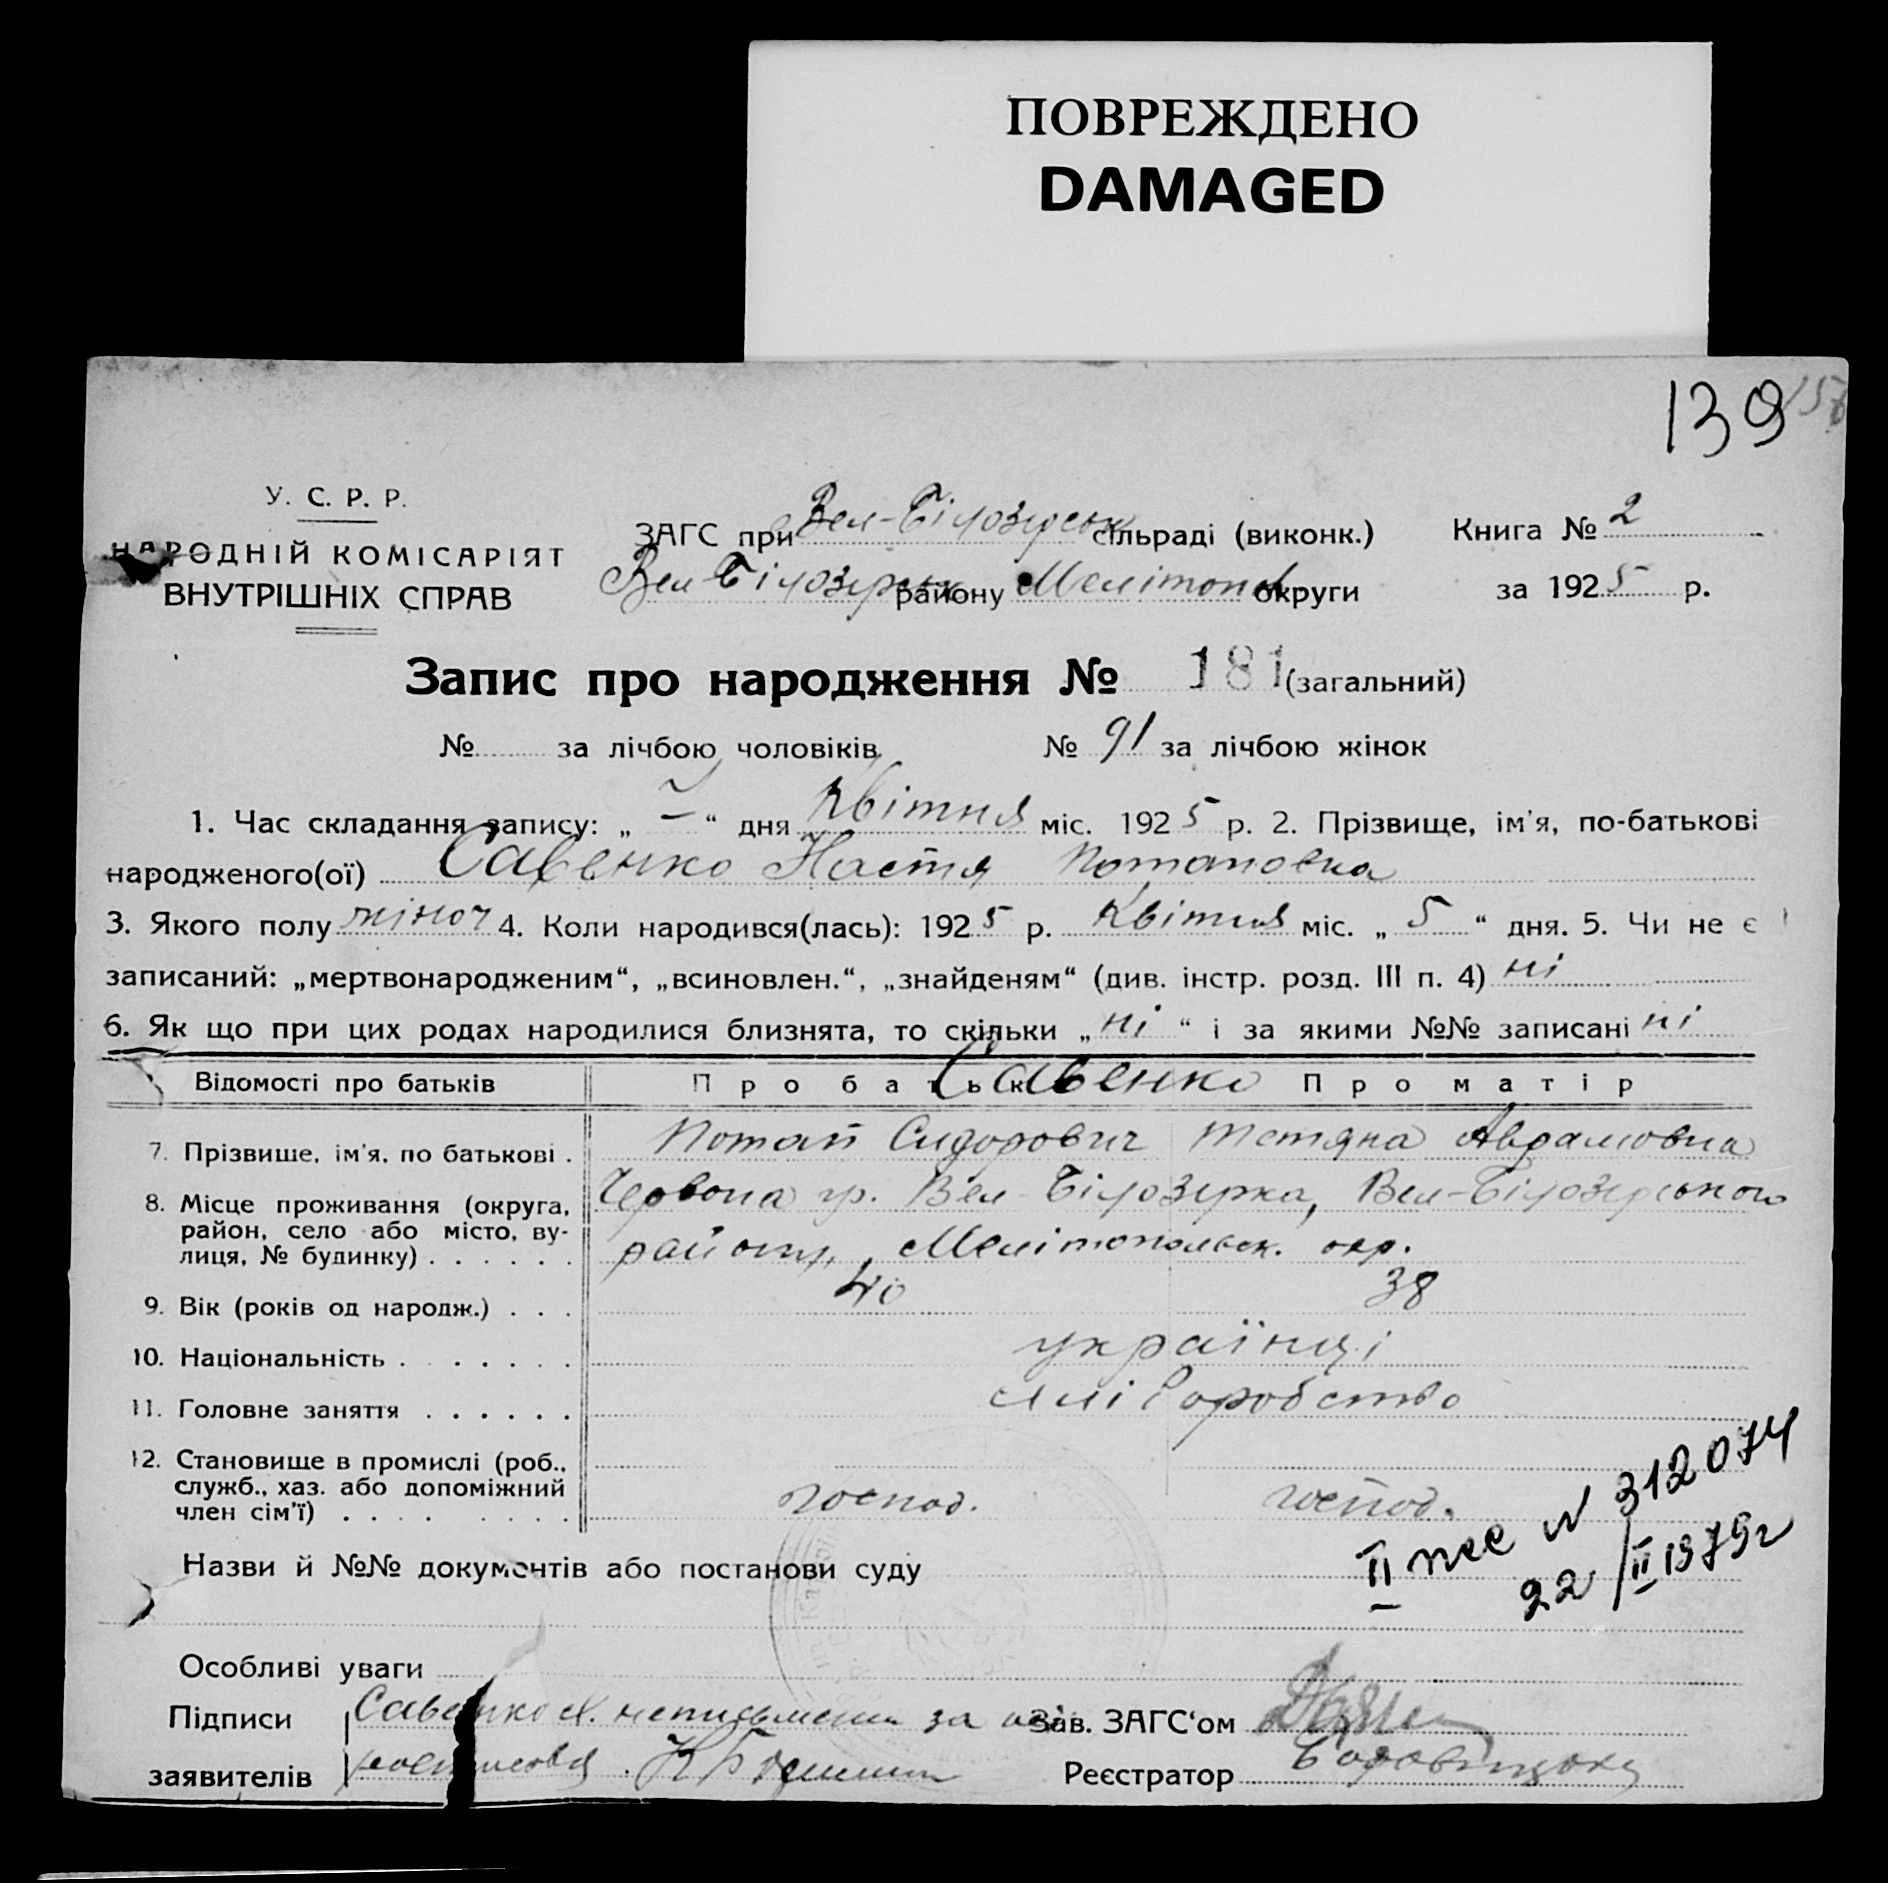 ПОВРЕЖДЕНО
DAMAGED
139
У. С. Р. Р.
НАРОДНІЙ КОМІСАРІЯТ
ВНУТРІШНІХ СПРАВ
ЗАГС при Вел-Білозерськ сільраді (виконк.) Книга № 2
Вел-Білозерськ району Мелітоп округи за 1925 р.
Запис про народження № 181 (загальний)
№ за лічбою чоловіків № 91 за лічбою жінок
1. Час складання запису: „ “ дня Квітня міс. 1925 р. 2. Прізвище, ім'я, по-батькові
народженого(ої) Савенко Настя Потаповна
3. Якого полу жіноч 4. Коли народився(лась): 1925 р. Квітня міс. „ 5 “ дня. 5. Чи не є
записаний: „мертвонародженим“, „всиновлен.“, „знайденям“ (див. інстр. розд. III п. 4) ні
6. Як що при цих родах народилися близнята, то скільки „ ні “ і за якими №№ записані ні
Відомості про батьків Про батька Савенко Про матір
7. Прізвише, ім'я, по батькові . Потап Сидорович Тетяна Аврамовна
8. Місце проживання (округа, Червона гр. Вел-Білозерка, Вел-Білозерського
район, село або місто, ву-
лиця, № будинку) . . . . . . району, Мелітопольськ. окр.
9. Вік (років од народж.) . . . 40 38
10. Національність . . . . . . . українці
11. Головне заняття . . . . . . хліборобство
12. Становище в промислі (роб.,
служб., хаз. або допоміжний
член сім'ї) . . . . . . . . господ. господ.
II пес N 312074
22/II 1979г
Назви й №№ документів або постанови суду
Особливі уваги
Підписи Савенко неписьменн за неї Зав. ЗАГС‘ом
заявителів Реєстратор